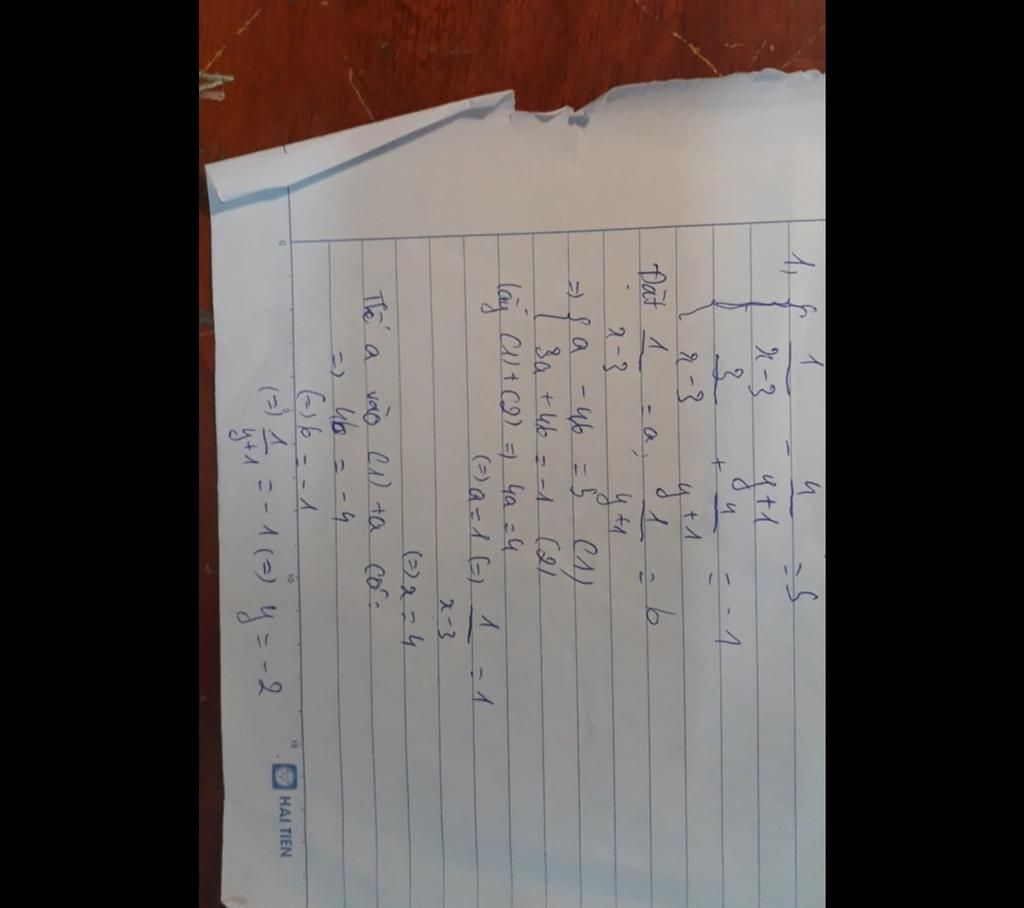 1, { 1/(x-3) - 4/(y+1) = 5
{ 3/(x-3) + 4/(y+1) = - 1
Đặt 1/(x-3) = a, 1/(y+1) = b
=> { a - 4b = 5 (1)
{ 3a + 4b = -1 (2)
lấy (1) + (2) => 4a = 4
(=) a = 1 (=) 1/(x-3) = 1
(=) x = 4
Thế a vào (1) ta có:
=> 4b = -4
(=) b = -1
(=) 1/(y+1) = -1 (=) y = -2
0 10 15
HAI TIEN